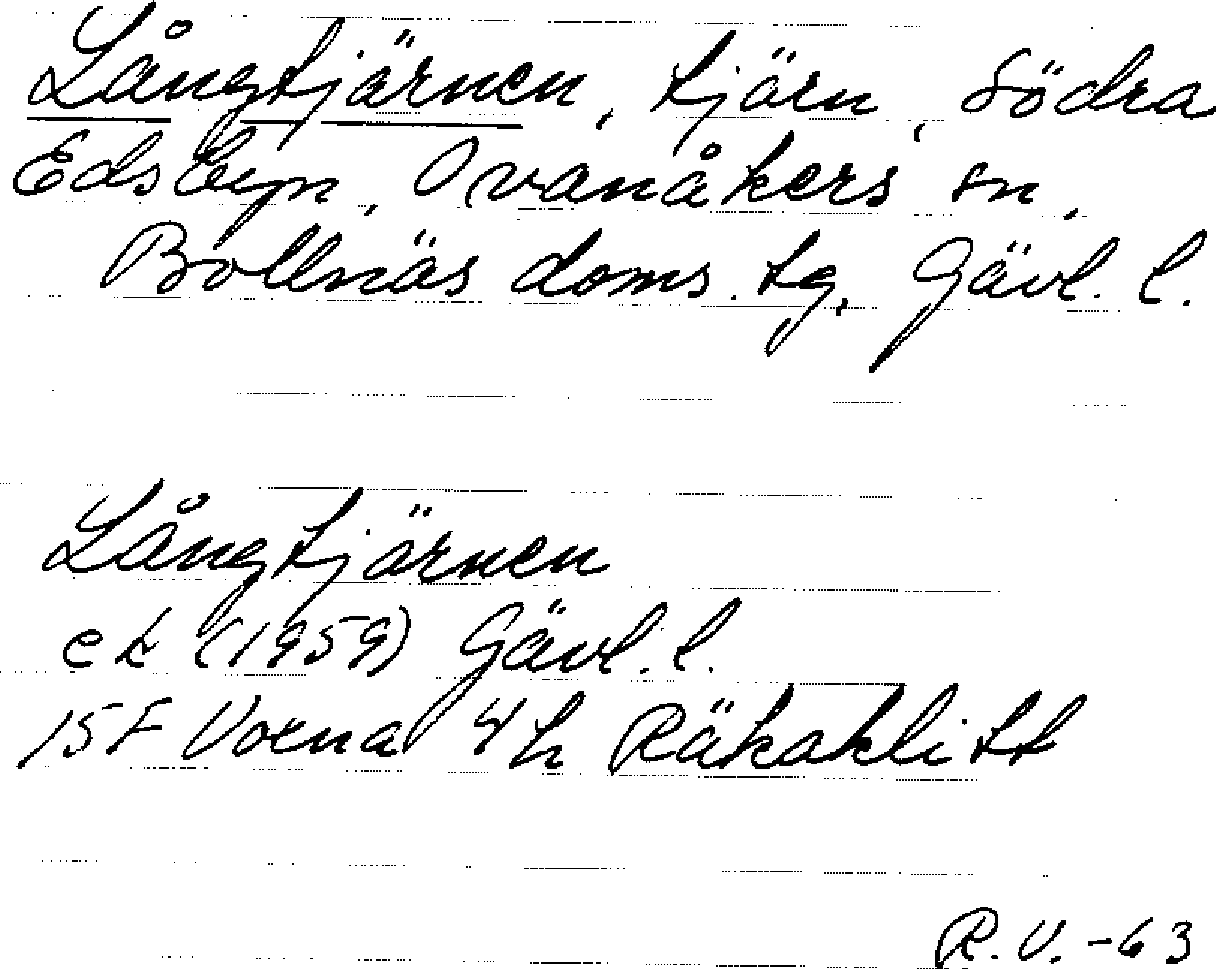 Långtjärnen, tjärn, Södra
Edsbyn, Ovanåkers sn,
Bollnäs doms. tg, Gävl. l.
Långtjärnen
ek (1959) Gävl. l.
15F Voxna 4h Räkaklitt
R.V. -63